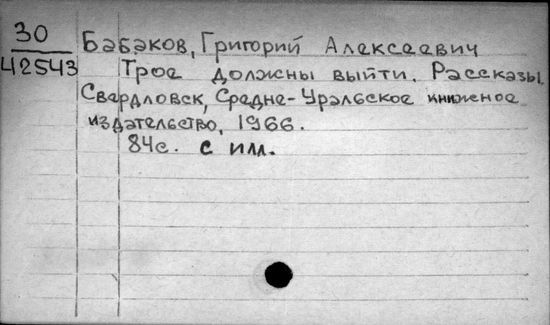 30 Бабаков, Григорий Алексеевич
42543 Трое должны выйти. Рассказы.
Свердловск, Средне-Уральское книжное
издательство, 1966.
84с. с илл.